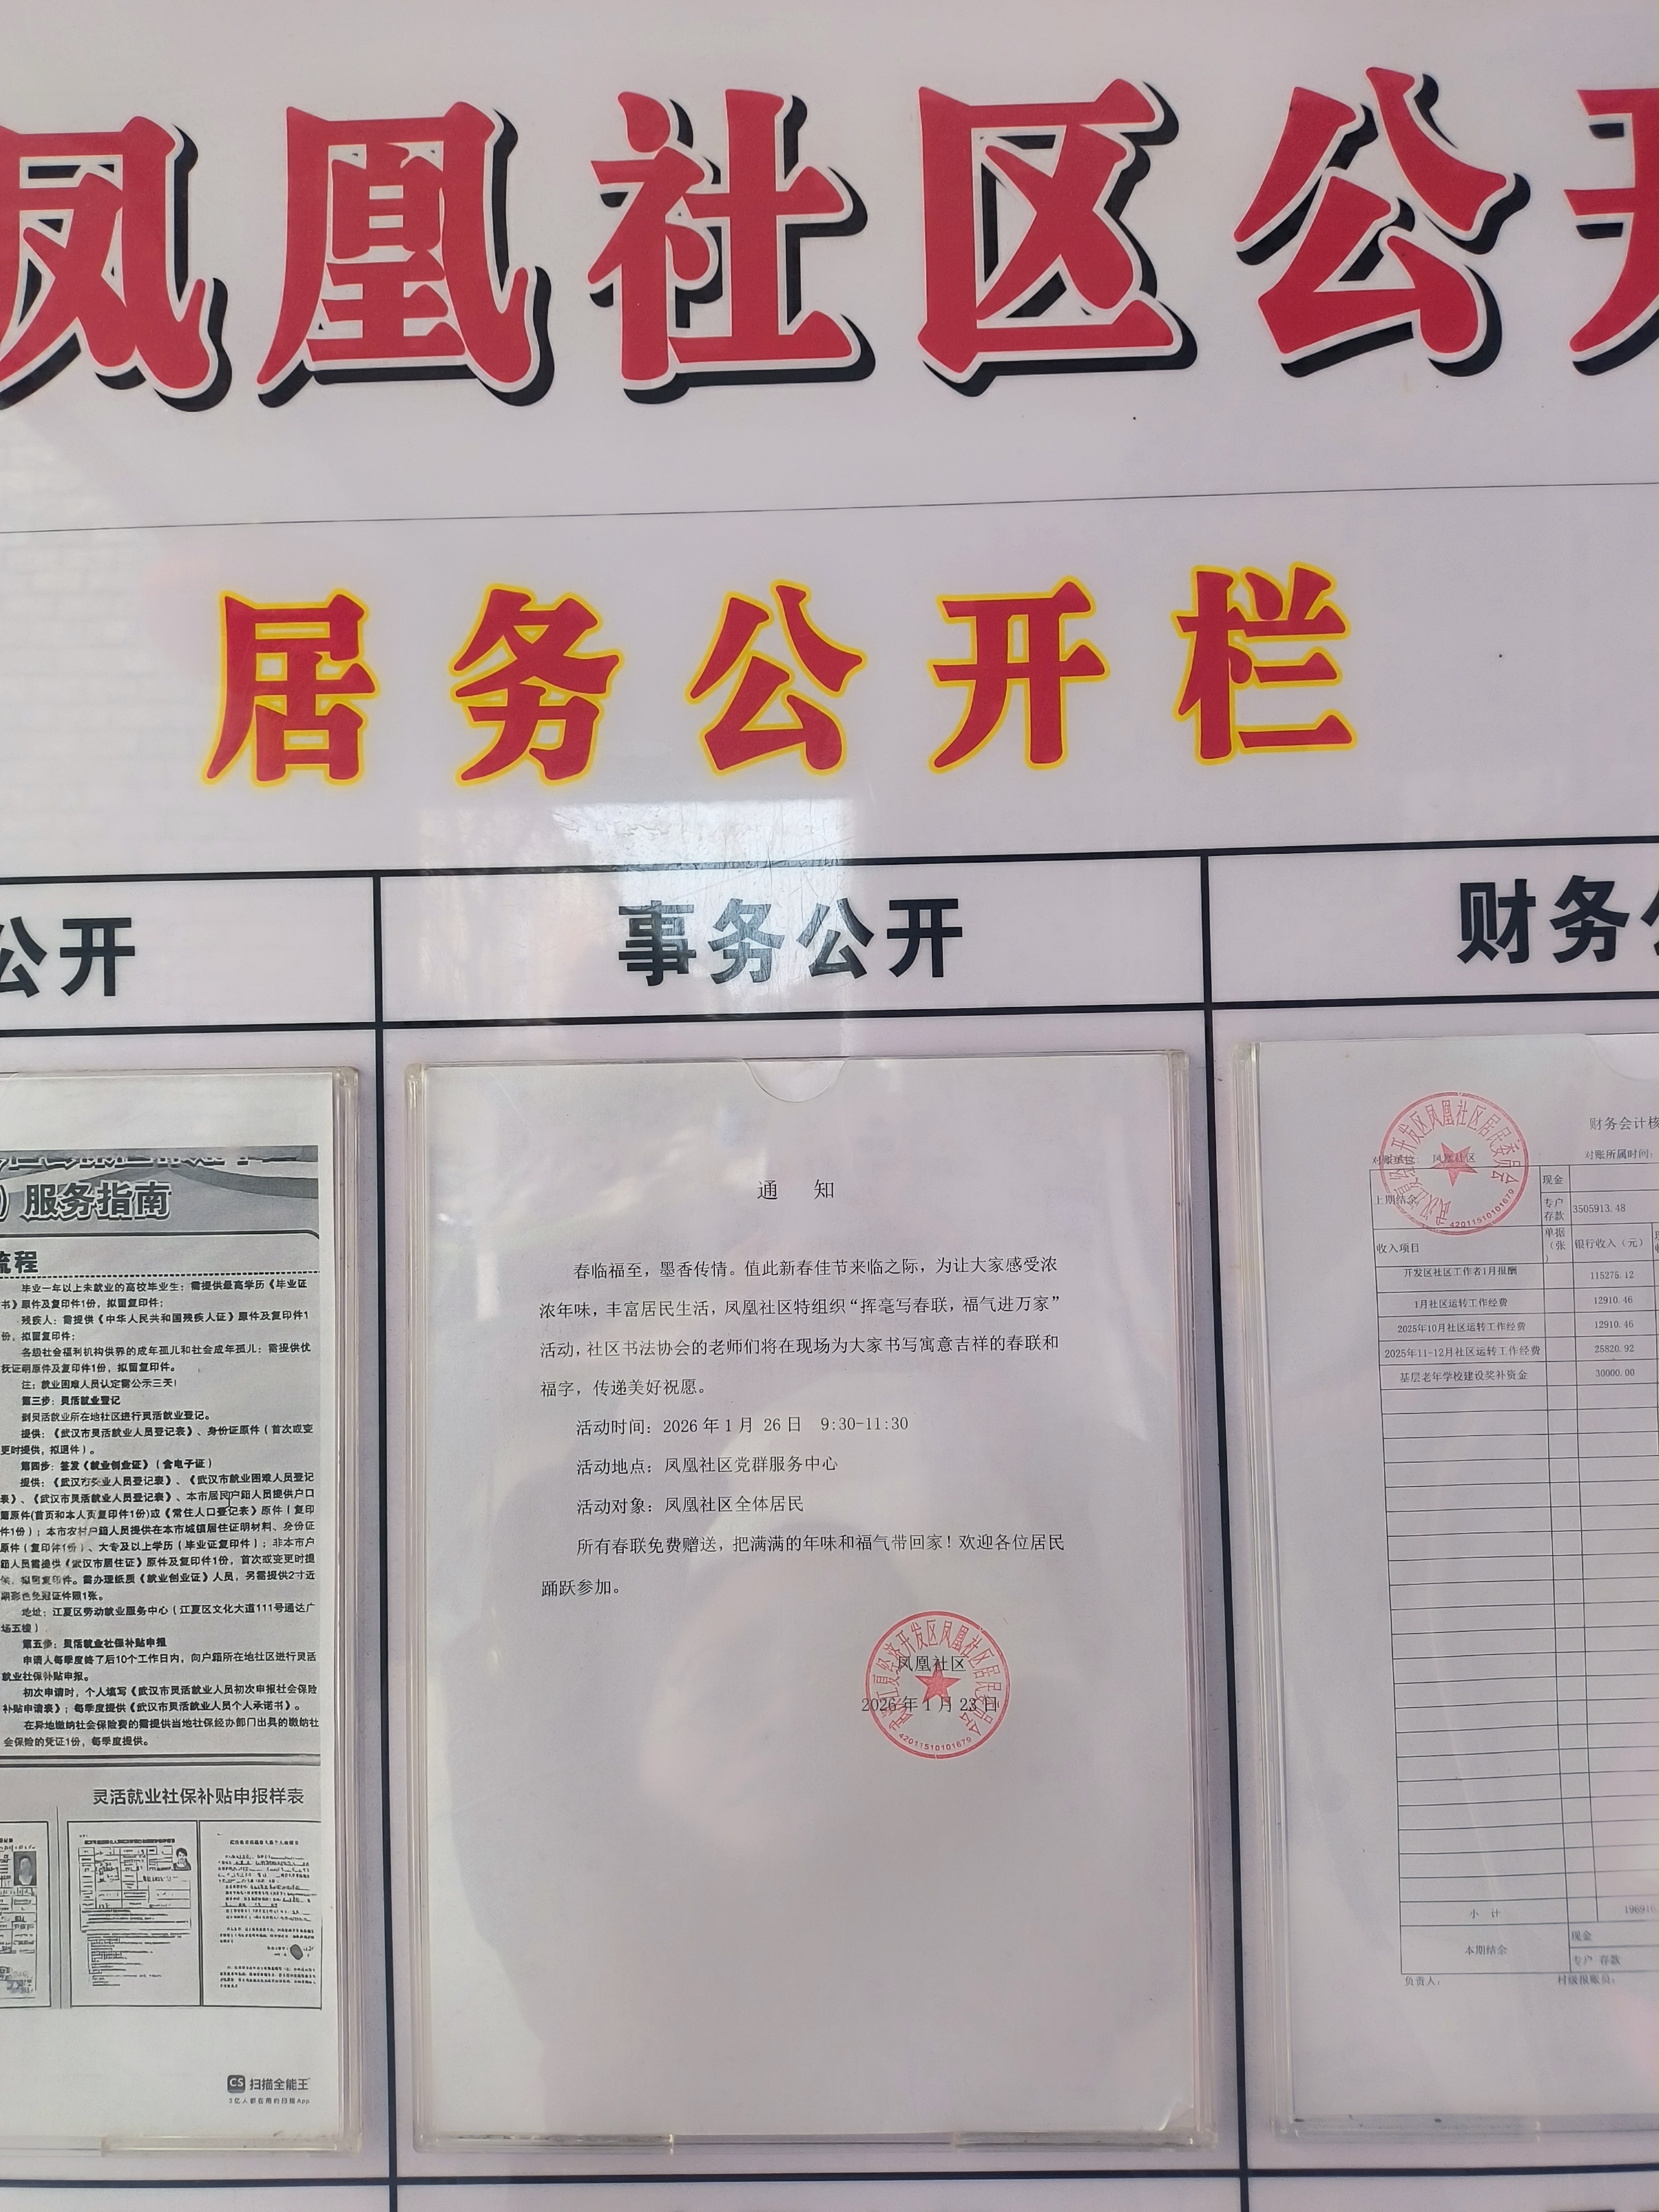 凤凰社区公开
居务公开栏
公开
事务公开
财务公
服务指南
流程
毕业一年以上未就业的高校毕业生：需提供最高学历《毕业证
书》原件及复印件1份，拟留复印件；
残疾人：需提供《中华人民共和国残疾人证》原件及复印件1
份，拟留复印件；
各级社会福利机构供养的成年孤儿和社会成年孤儿：需提供优
抚证明原件及复印件1份，拟留复印件。
注：就业困难人员认定需公示三天！
第三步：灵活就业登记
到灵活就业所在地社区进行灵活就业登记。
提供：《武汉市灵活就业人员登记表》、身份证原件（首次或变
更时提供，拟退件）。
第四步：签发《就业创业证》（含电子证）
提供：《武汉市失业人员登记表》、《武汉市就业困难人员登记
表》、《武汉市灵活就业人员登记表》、本市居民户籍人员提供户口
簿原件(首页和本人页复印件1份)或《常住人口登记表》原件（复印
件1份）；本市农村户籍人员提供在本市城镇居住证明材料、身份证
原件（复印件1份）、大专及以上学历（毕业证复印件）；非本市户
籍人员需提供《武汉市居住证》原件及复印件1份，首次或变更时提
供，拟留复印件。需办理纸质《就业创业证》人员，另需提供2寸近
期彩色免冠证件照1张。
地址：江夏区劳动就业服务中心（江夏区文化大道111号通达广
场五楼）
第五步：灵活就业社保补贴申报
申请人每季度终了后10个工作日内，向户籍所在地社区进行灵活
就业社保补贴申报。
初次申请时，个人填写《武汉市灵活就业人员初次申报社会保险
补贴申请表》；每季度提供《武汉市灵活就业人员个人承诺书》。
在异地缴纳社会保险费的需提供当地社保经办部门出具的缴纳社
会保险的凭证1份，每季度提供。
灵活就业社保补贴申报样表
CS 扫描全能王
3亿人都在用的扫描App
通 知
春临福至，墨香传情。值此新春佳节来临之际，为让大家感受浓
浓年味，丰富居民生活，凤凰社区特组织“挥毫写春联，福气进万家”
活动，社区书法协会的老师们将在现场为大家书写寓意吉祥的春联和
福字，传递美好祝愿。
活动时间：2026年1月 26日 9:30-11:30
活动地点：凤凰社区党群服务中心
活动对象：凤凰社区全体居民
所有春联免费赠送，把满满的年味和福气带回家！欢迎各位居民
踊跃参加。
凤凰社区
2026年1月23日
42011510101679
财务会计核
对账单位： 凤凰社区 对账所属时间：
上期结余 现金
专户存款 3505913.48
收入项目 单据（张） 银行收入（元）
开发区社区工作者1月报酬 115275.12
1月社区运转工作经费 12910.46
2025年10月社区运转工作经费 12910.46
2025年11-12月社区运转工作经费 25820.92
基层老年学校建设奖补资金 30000.00
小 计 196910
本期结余 现金
专户 存款
负责人： 村级报账员：
42011510101679